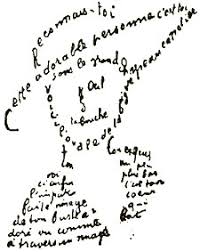 Reconnais-toi
Cette adorable personne c'est toi
sous le grand chapeau canotier
Œil
Nez
la bouche
Voici l'ovale de ta figure
ton cou exquis
voi
ci enfin
l'impar
faite image
de ton buste a
doré vu comme
à travers un nuage
un peu
plus bas
c'est ton
coeur
qui
bat